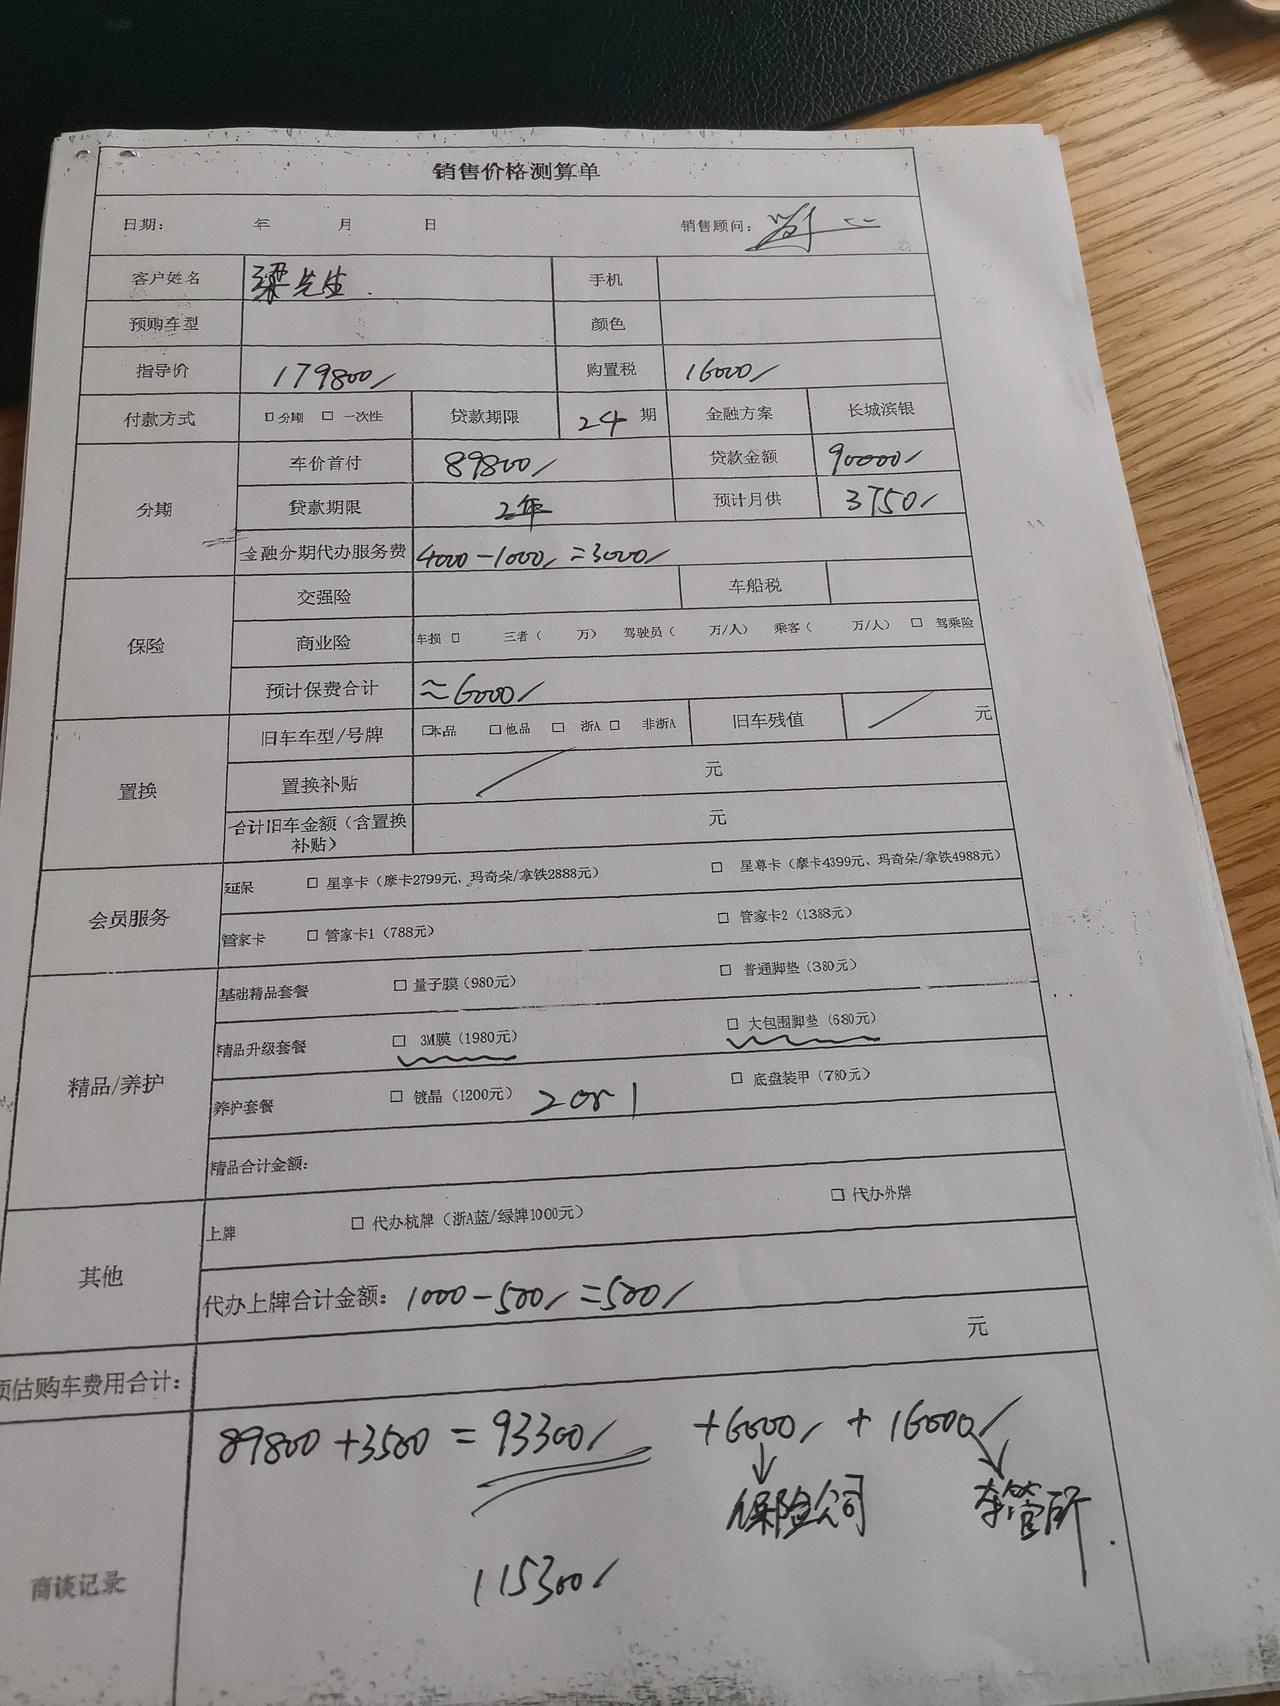 销售价格测算单
日期: 年 月 日 销售顾问:
客户姓名 梁先生. 手机
预购车型 颜色
指导价 179800/ 购置税 16000/
付款方式 □分期 □ 一次性 贷款期限 24 期 金融方案 长城滨银
分期 车价首付 89800/ 贷款金额 90000/
贷款期限 2年 预计月供 3750/
金融分期代办服务费 4000-1000/=3000/
保险 交强险 车船税
商业险 车损 □ 三者( 万) 驾驶员( 万/人) 乘客( 万/人) □ 驾乘险
预计保费合计 ≈6000/
置换 旧车车型/号牌 □本品 □他品 □ 浙A □ 非浙A 旧车残值 / 元
置换补贴 / 元
合计旧车金额(含置换补贴) 元
会员服务 延保 □ 星享卡(摩卡2799元、玛奇朵/拿铁2888元) □ 星尊卡(摩卡4399元、玛奇朵/拿铁4988元)
管家卡 □ 管家卡1(788元) □ 管家卡2(1388元)
精品/养护 基础精品套餐 □ 量子膜(980元) □ 普通脚垫(380元)
精品升级套餐 □ 3M膜(1980元) □ 大包围脚垫(680元)
养护套餐 □ 镀晶(1200元) 2or1 □ 底盘装甲(780元)
精品合计金额:
其他 上牌 □ 代办杭牌(浙A蓝/绿牌1000元) □ 代办外牌
代办上牌合计金额: 1000-500/=500/
预估购车费用合计: 元
商谈记录 89800+3500=93300/ +6000/ +16000/
保险公司 车管所.
115300/